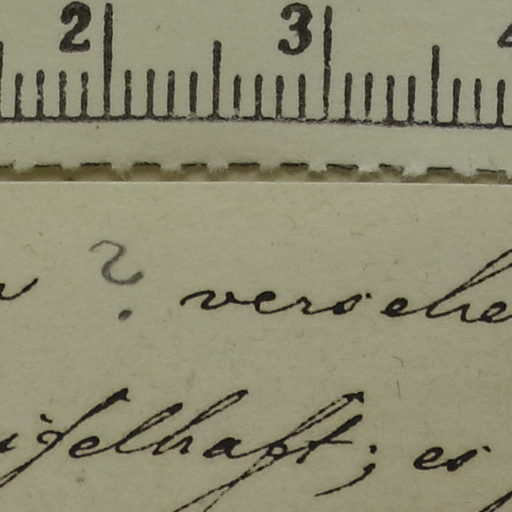 2 3 4
? versehe
ifelhaft; es